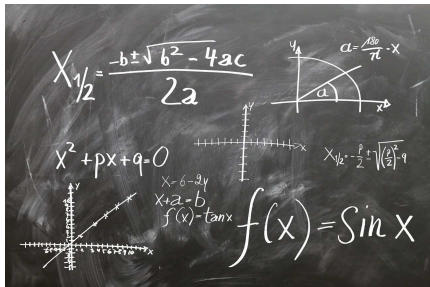 X1/2 = -b±√b²-4ac / 2a
y
a = 180/π · x
a
x
y
x
x² + px + q = 0
X1/2 = -p/2 ± √(p/2)²-q
y
x
x = 6 - 2y
x + a = b
f(x) = tanx
f(x) = Sin x